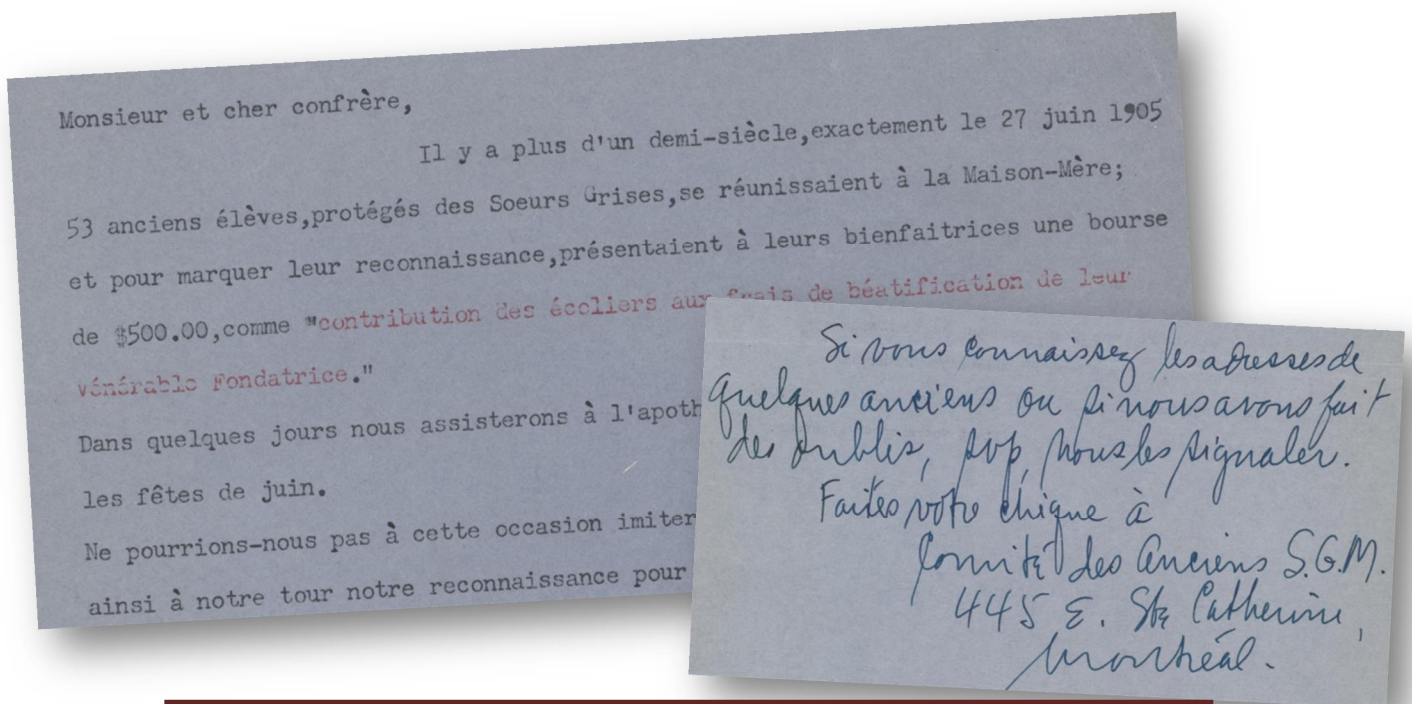 Monsieur et cher confrère,
Il y a plus d'un demi-siècle,exactement le 27 juin 1905
53 anciens élèves,protégés des Soeurs Grises,se réunissaient à la Maison-Mère;
et pour marquer leur reconnaissance,présentaient à leurs bienfaitrices une bourse
de $500.00,comme "contribution des écoliers aux frais de béatification de leur
vénérable Fondatrice."
Dans quelques jours nous assisterons à l'apoth
les fêtes de juin.
Ne pourrions-nous pas à cette occasion imiter
ainsi à notre tour notre reconnaissance pour
Si vous connaissez les adresses de
quelques anciens ou si nous avons fait
des oublis, svp, nous les signaler.
Faites votre chèque à
Comité des Anciens S.G.M.
445 E. Ste Catherine,
Montréal.